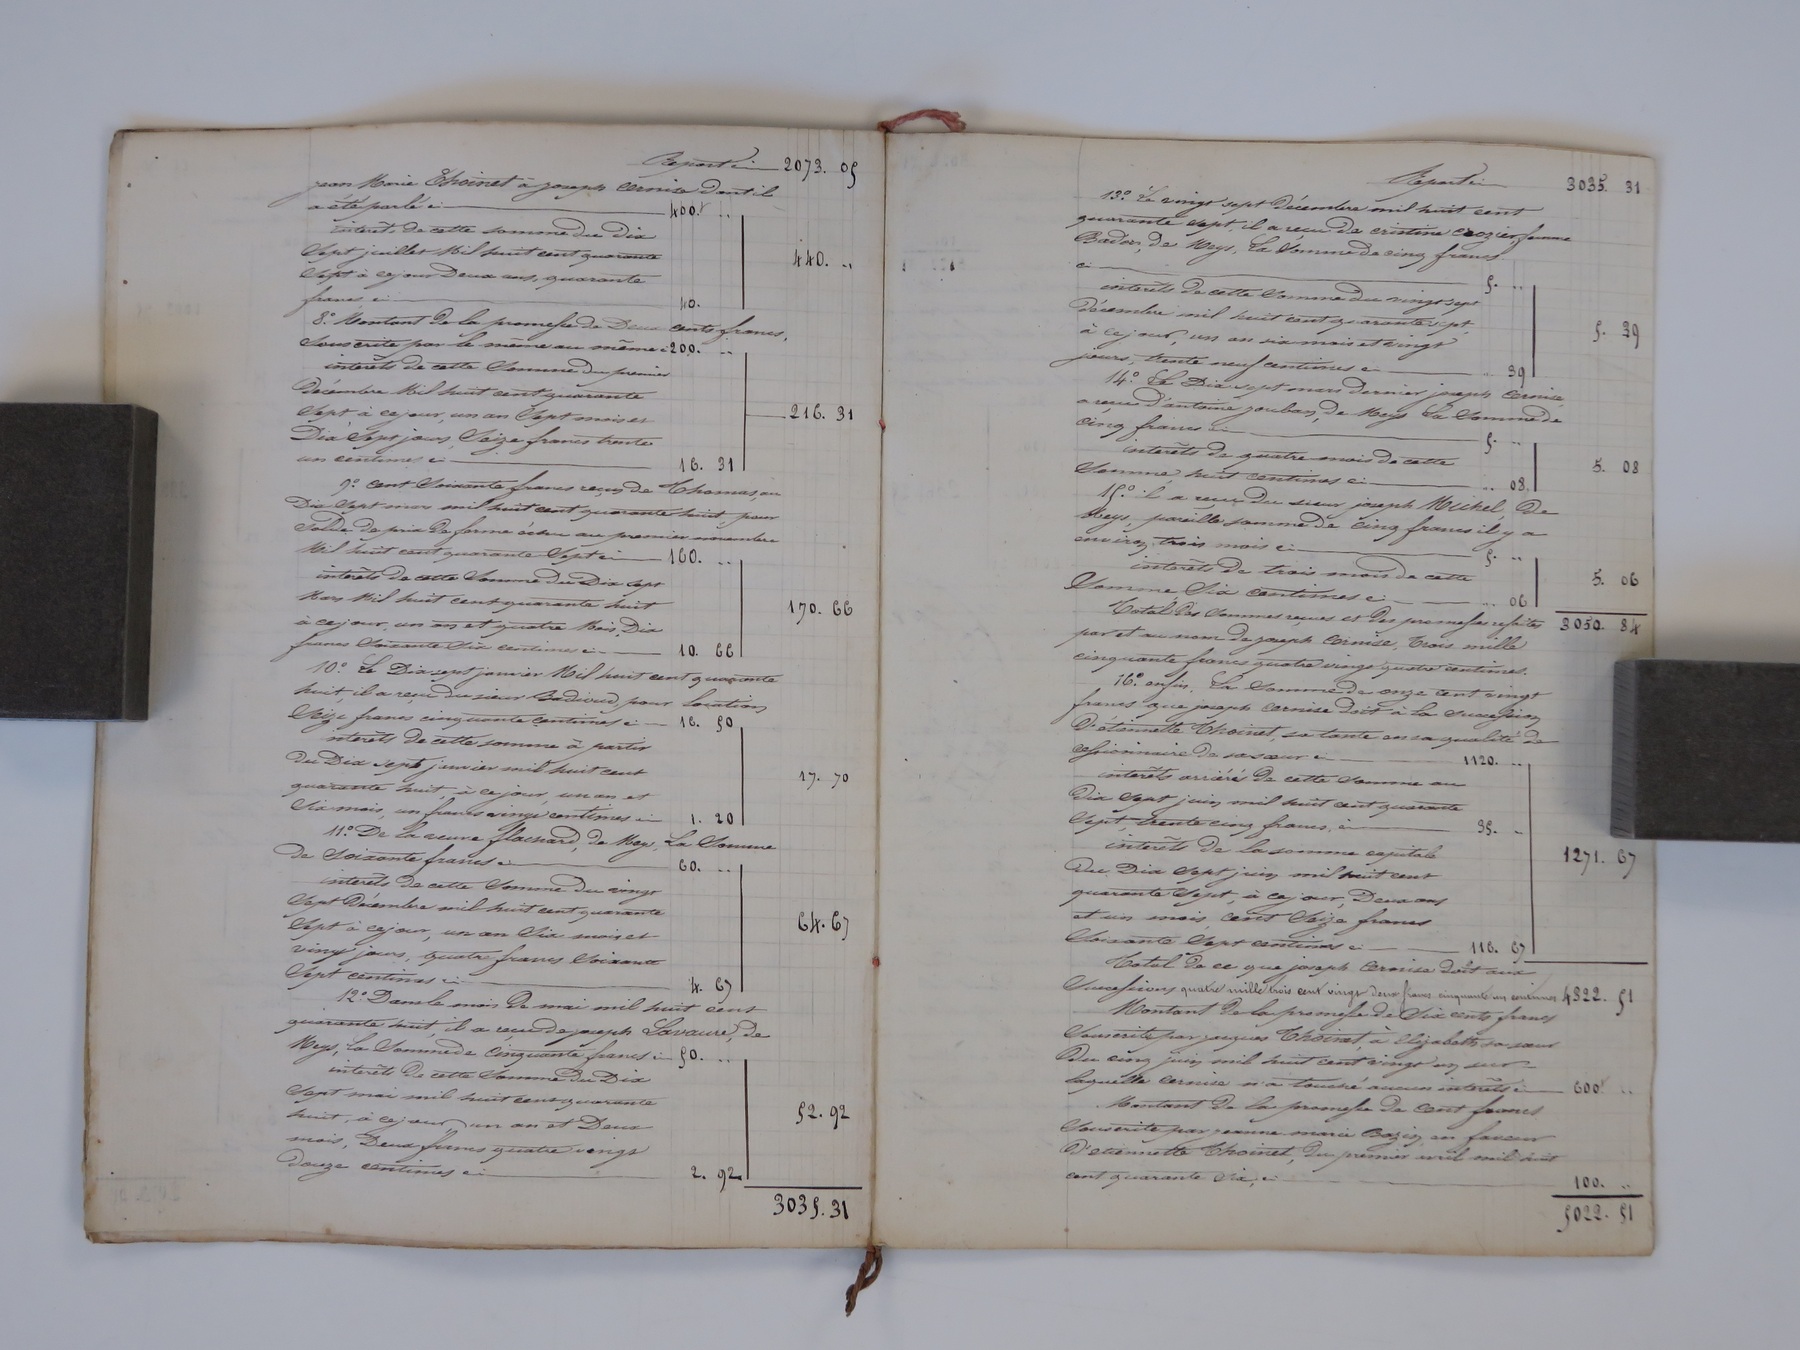 Report ci 2073. 05
jean Marie Thoinet à joseph Cornise dont il
a été parlé ci 400. ..
intérêts de cette somme du dix
Sept juillet Mil huit cent quarante
Sept à ce jour Deux ans, quarante
francs ci 40.
440. ..
8.° Montant de la promesse de Deux cents francs,
Souscrite par le même au même ci 200. ..
intérêts de cette Somme du premier
Décembre Mil huit cent quarante
Sept à ce jour, un an Sept mois et
Dix Sept jours, Seize francs trente
un centimes ci 16. 31
216. 31
9.° Cent Soixante francs reçus de Thomas, au
Dix Sept mars mil huit cent quarante huit, pour
Solde de prix de ferme échu au premier novembre
Mil huit cent quarante Sept ci 160. ..
intérêts de cette Somme du Dix sept
Mars Mil huit cent quarante huit
à ce jour, un an et quatre Mois, Dix
francs Soixante Six centimes ci 10. 66
170. 66
10.° Le Dix sept janvier Mil huit cent quarante
huit, il a reçu du sieur Badivud, pour location
Seize francs cinquante centimes ci 16. 50
intérêts de cette somme à partir
du Dix sept janvier mil huit cent
quarante huit, à ce jour, un an et
Six mois, un francs vingt centimes ci 1. 20
17. 70
11.° De la veuve flachard, de Mey, La Somme
de Soixante francs ci 60. ..
intérêts de cette Somme du vingt
Sept Décembre mil huit cent quarante
Sept à ce jour, un an Six mois et
vingt jours, quatre francs Soixante
Sept centimes ci 4. 67
64. 67
12.° Dans le mois de mai mil huit cent
quarante huit, il a reçu de joseph Lavaure, de
Meys, la Somme de Cinquante francs ci 50. ..
intérêt de cette Somme du Dix
Sept mai mil huit cent quarante
huit, à ce jour, un an et Deux
mois, Deux francs quatre vingt
douze centimes ci 2. 92
52. 92
3035. 31
Report ci 3035. 31
13.° Le vingt sept Décembre mil huit cent
quarante sept, il a reçu de cristine Crozier femme
de Meys, La Somme de cinq francs
ci 5. ..
intérêts de cette Somme du vingt sept
décembre mil huit cent quarante sept,
à ce jour, un an six mois et vingt
jours, trente neuf centimes ci .. 39
5. 39
14.° Le Dix sept mars dernier joseph Cornise
a reçu d'antoine jouban, de Meys La Somme de
cinq francs ci 5. ..
intérêts de quatre mois de cette
Somme huit centimes ci .. 08
5. 08
15.° il a reçu du sieur joseph Michel, de
Meys, pareille somme de cinq francs il y a
environ trois mois ci 5. ..
intérêts de trois mois de cette
Somme Six centimes ci .. 06
5. 06
Total des Sommes reçues et des promesses refaites 3050. 84
par et au nom de joseph Cornise, trois mille
cinquante francs quatre vingt quatre centimes.
16.° enfin. La Somme de onze cent vingt
francs que joseph Cornise doit à la Succession
D'étiennette Thoinet, sa tante en sa qualité de
cessionnaire de sa sœur ci 1120. ..
intérêts arriérés de cette Somme au
dix Sept juin mil huit cent quarante
Sept, trente cinq francs, ci 35. ..
intérêts de la somme capitale
du Dix Sept juin mil huit cent
quarante Sept, à ce jour, Deux ans
et un mois, cent Seize francs
Soixante Sept centimes ci 116. 67
1271. 67
Total de ce que joseph Cornise doit aux
Successions quatre mille trois cent vingt deux francs cinquante un centimes 4322. 51
Montant de la promesse de Six cents francs
Souscrite par jacques Thoinet, à Elizabeth sa sœur
du cinq juin mil huit cent vingt un sur
laquelle Cornise n'a touché aucun intérêts ci 600. ..
Montant de la promesse de cent francs
Souscrite par jeanne marie Bazin en faveur
D'étiennette Thoinet, du premier avril mil huit
cent quarante Six, ci 100. ..
5022. 51